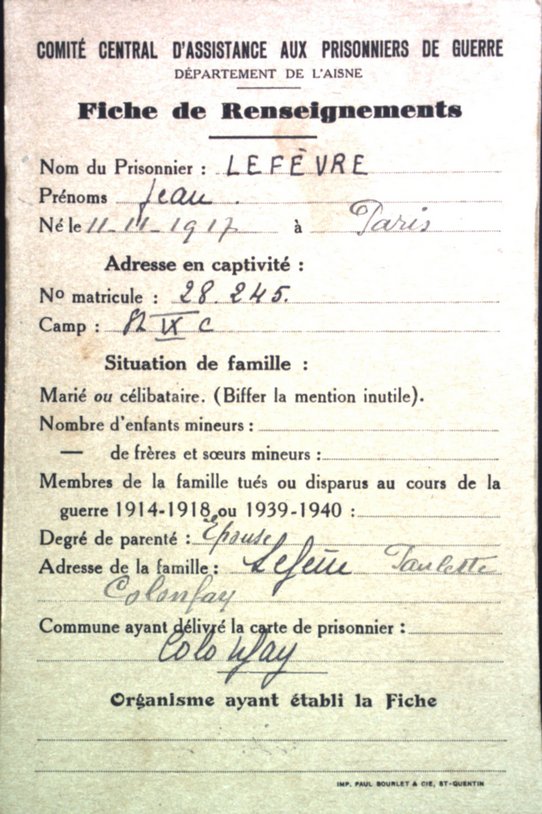 COMITÉ CENTRAL D'ASSISTANCE AUX PRISONNIERS DE GUERRE
DÉPARTEMENT DE L'AISNE
Fiche de Renseignements
Nom du Prisonnier : LEFÈVRE
Prénoms Jean.
Né le 11-11-1917 à Paris
Adresse en captivité :
No matricule : 28.245.
Camp : IX C
Situation de famille :
Marié ou célibataire. (Biffer la mention inutile).
Nombre d'enfants mineurs :
— de frères et sœurs mineurs :
Membres de la famille tués ou disparus au cours de la
guerre 1914-1918 ou 1939-1940 :
Degré de parenté : Épouse
Adresse de la famille : Paulette
Colonfay
Commune ayant délivré la carte de prisonnier :
Colonfay
Organisme ayant établi la Fiche
IMP. PAUL BOURLET & CIE, ST-QUENTIN